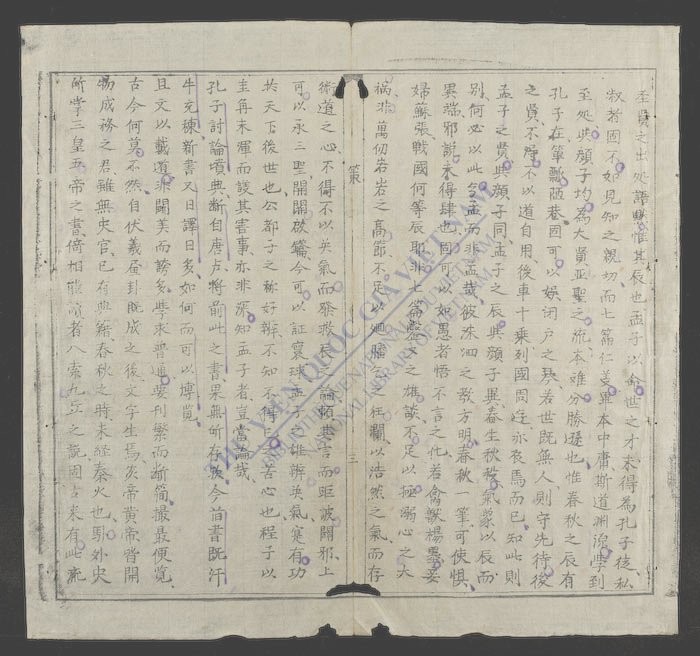 圣賢之出处語默惟其辰也孟子以命世之才未得為孔子徒私
淑諸國不如見知之親切而七篇仁义畢本中庸斯道淵源學到
至处與顏子均為大賢亞聖之流本难分勝也惟春秋之辰有
孔子在簞瓢陋巷固可以娛闭户之若世既無人則守先待後
之責不得不以道自用後車十乘列國周亦夜焉而已知此則
孟子之賢與顏子同孟子之辰與顏子異春生秋殺氣象以辰而
別何必以此孟而非孟哉彼洙泗之教方明春秋一筆可使懼
異端邪說未得肆也回可以如愚者悟不言之化若禽獸楊墨妾
婦蘇張戰國何等辰耶非七篇文之雄談不足以溺心之大
禍非萬仞岩岩之高節不足以廻之狂瀾以浩然之氣而存
策
三
衛道之心不得不以英氣而發救民之論頻其言而距詖闢邪上
可以承三聖開闢今可以証寰球孟子之雄辨英氣寔有功
於天下後世也公都子之称好辨不知不得已苦心也程子以
圭再末渾而談其害事亦非深知孟子者豈當論哉
孔子討論墳典断自唐卢將前此之書果無所存歟今旧書既汗
牛充棟新書又日譯日多如何而可以博覧
且文以載道非鬪美而誇多學求普通要刊繁而断简撮最便覧
古今何莫不然自伏羲画卦既成之後文字生焉炎帝黄帝皆開
物成務之君雖無史官已有典籍春秋之時未經秦火也外史
所掌三皇五帝之書倚相能讀者八索九丘之說固古來有此充
THƯ VIỆN QUỐC GIA VIỆT NAM
NATIONAL LIBRARY OF VIETNAM